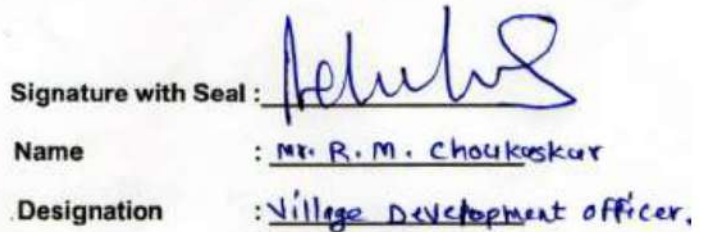 Signature with Seal :
Name : Mr. R. M. Choukaskar
Designation : Village Development officer.